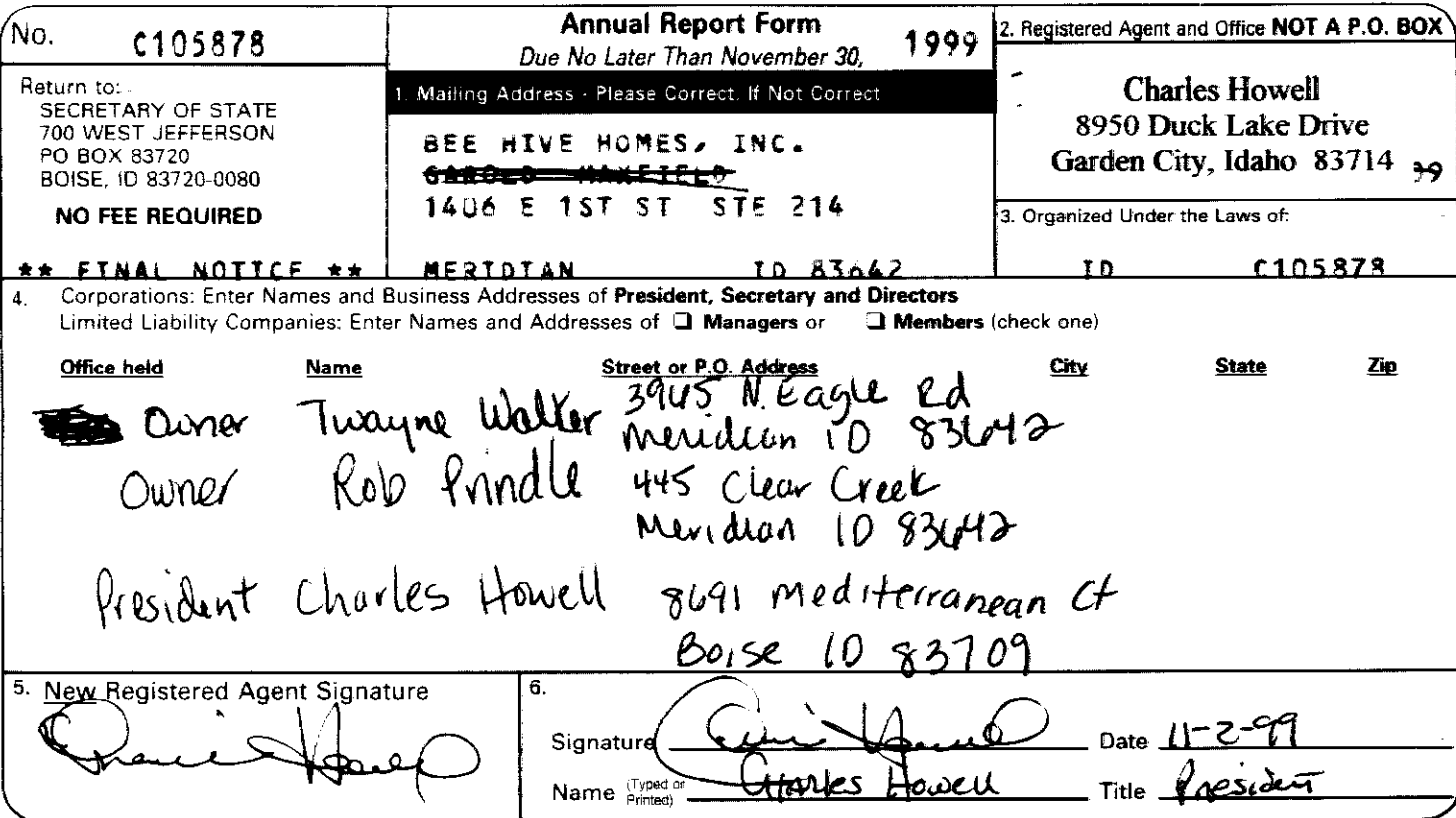 No. C105878
Annual Report Form
Due No Later Than November 30, 1999
Return to:
SECRETARY OF STATE
700 WEST JEFFERSON
PO BOX 83720
BOISE, ID 83720-0080
NO FEE REQUIRED
** FINAL NOTICE **
1. Mailing Address - Please Correct, If Not Correct
BEE HIVE HOMES, INC.
GAROLD MAXFIELD
1406 E 1ST ST STE 214
MERIDIAN ID 83642
2. Registered Agent and Office NOT A P.O. BOX
Charles Howell
8950 Duck Lake Drive
Garden City, Idaho 83714
3. Organized Under the Laws of:
ID C105878
4. Corporations: Enter Names and Business Addresses of President, Secretary and Directors
Limited Liability Companies: Enter Names and Addresses of ❑ Managers or ❑ Members (check one)
Office held Name Street or P.O. Address City State Zip
Owner Twayne Walker 3945 N. Eagle Rd
Meridian ID 83642
Owner Rob Prindle 445 Clear Creek
Meridian ID 83642
President Charles Howell 8691 Mediterranean Ct
Boise ID 83709
5. New Registered Agent Signature
6.
Signature Date 11-2-99
Name (Typed or Printed) Charles Howell Title President